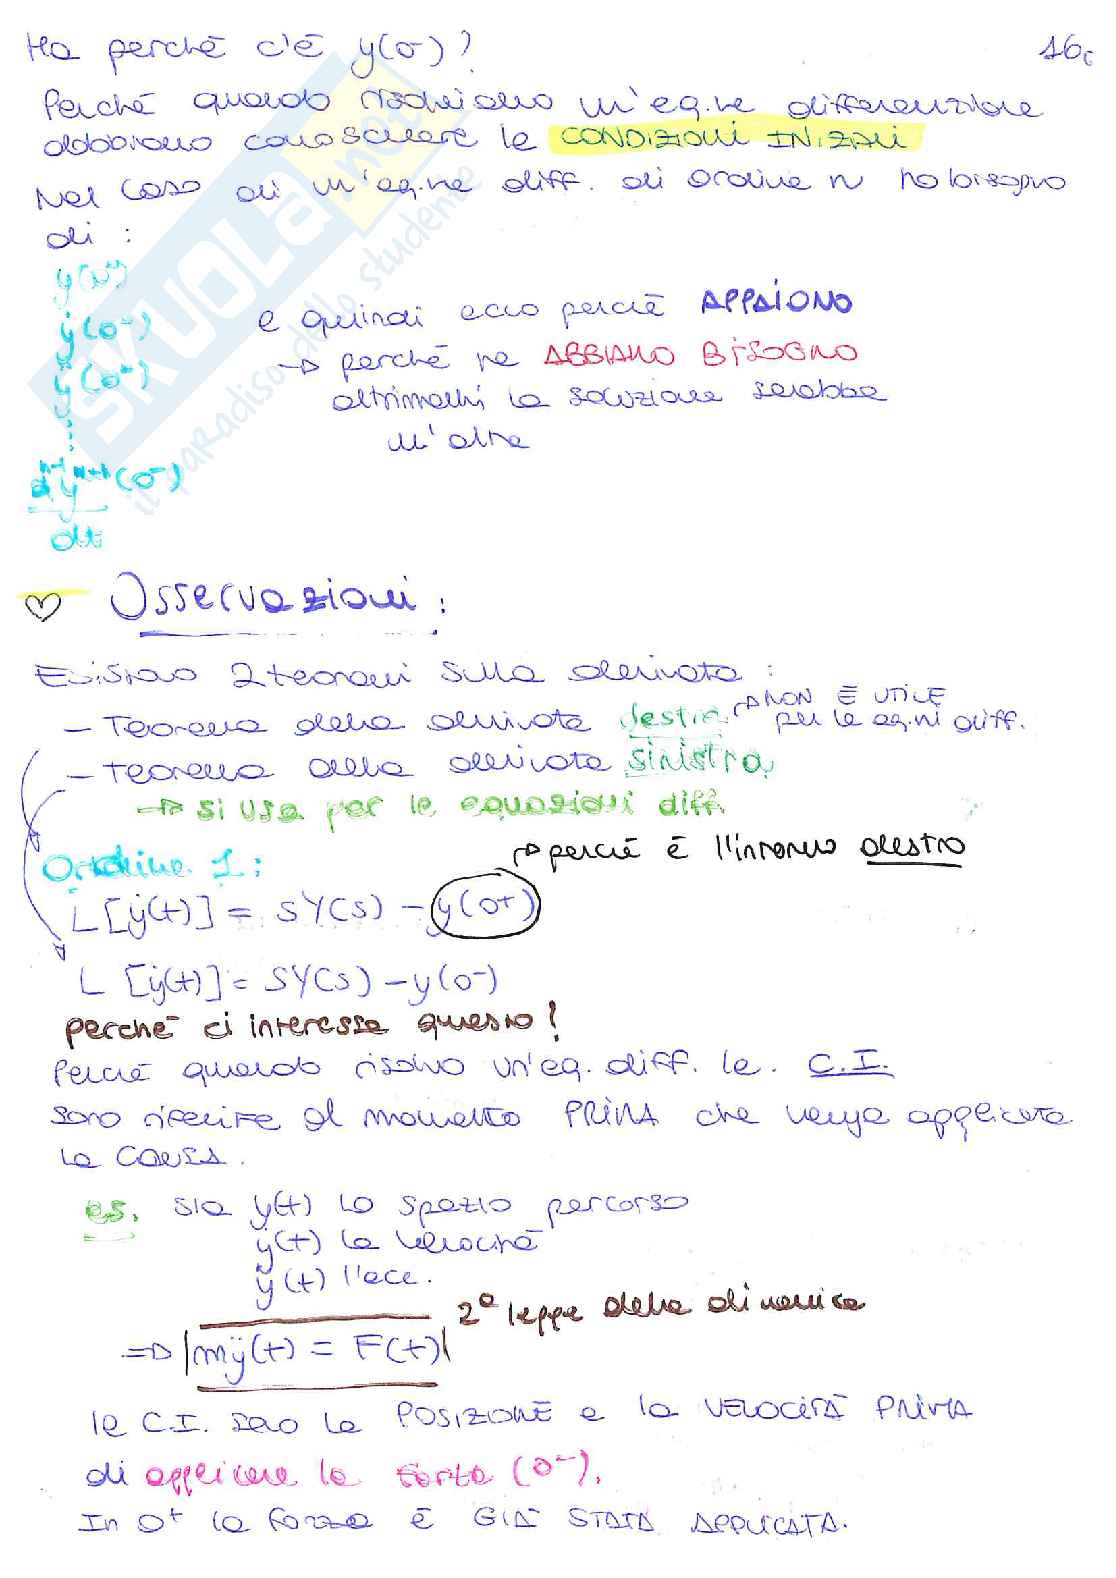 Ma perché c'è y(0-) ?
16c
Perché quando risolviamo un'eq.ne differenziale
abbiamo conoscere le CONDIZIONI INIZIALI
Nel caso di un'eq.ne diff. di ordine n ho bisogno
di :
y(0-)
ẏ(0-)
ÿ(0-)
e quindi ecco perché APPAIONO
→ perché ne ABBIAMO BISOGNO
altrimenti la soluzione sarebbe
un'altra
d^n-1 y^n-1 (0-)
dt
SKUOLA.net
il paradiso dello studente
♡ Osservazioni :
Esistono 2 teoremi sulla derivata :
- Teorema della derivata destra → NON È UTILE
per le eq.ni diff.
- Teorema della derivata sinistra
→ si usa per le equazioni diff.
Ordine 1 :
→ perché è l'intorno destro
L [ẏ(t)] = SY(S) - y(0+)
L [ẏ(t)] = SY(S) - y(0-)
perché ci interessa questo!
Perché quando risolvo un'eq. diff. le C.I.
sono riferite al momento PRIMA che venga applicata
la CAUSA.
es. sia y(t) lo spazio percorso
ẏ(t) la velocità
ÿ(t) l'acc.
2ª legge della dinamica
⇒ |mÿ(t) = F(t)|
le C.I. sono la POSIZIONE e la VELOCITÀ PRIMA
di applicare la forza (0-).
In 0+ la forza è GIÀ STATA APPLICATA.